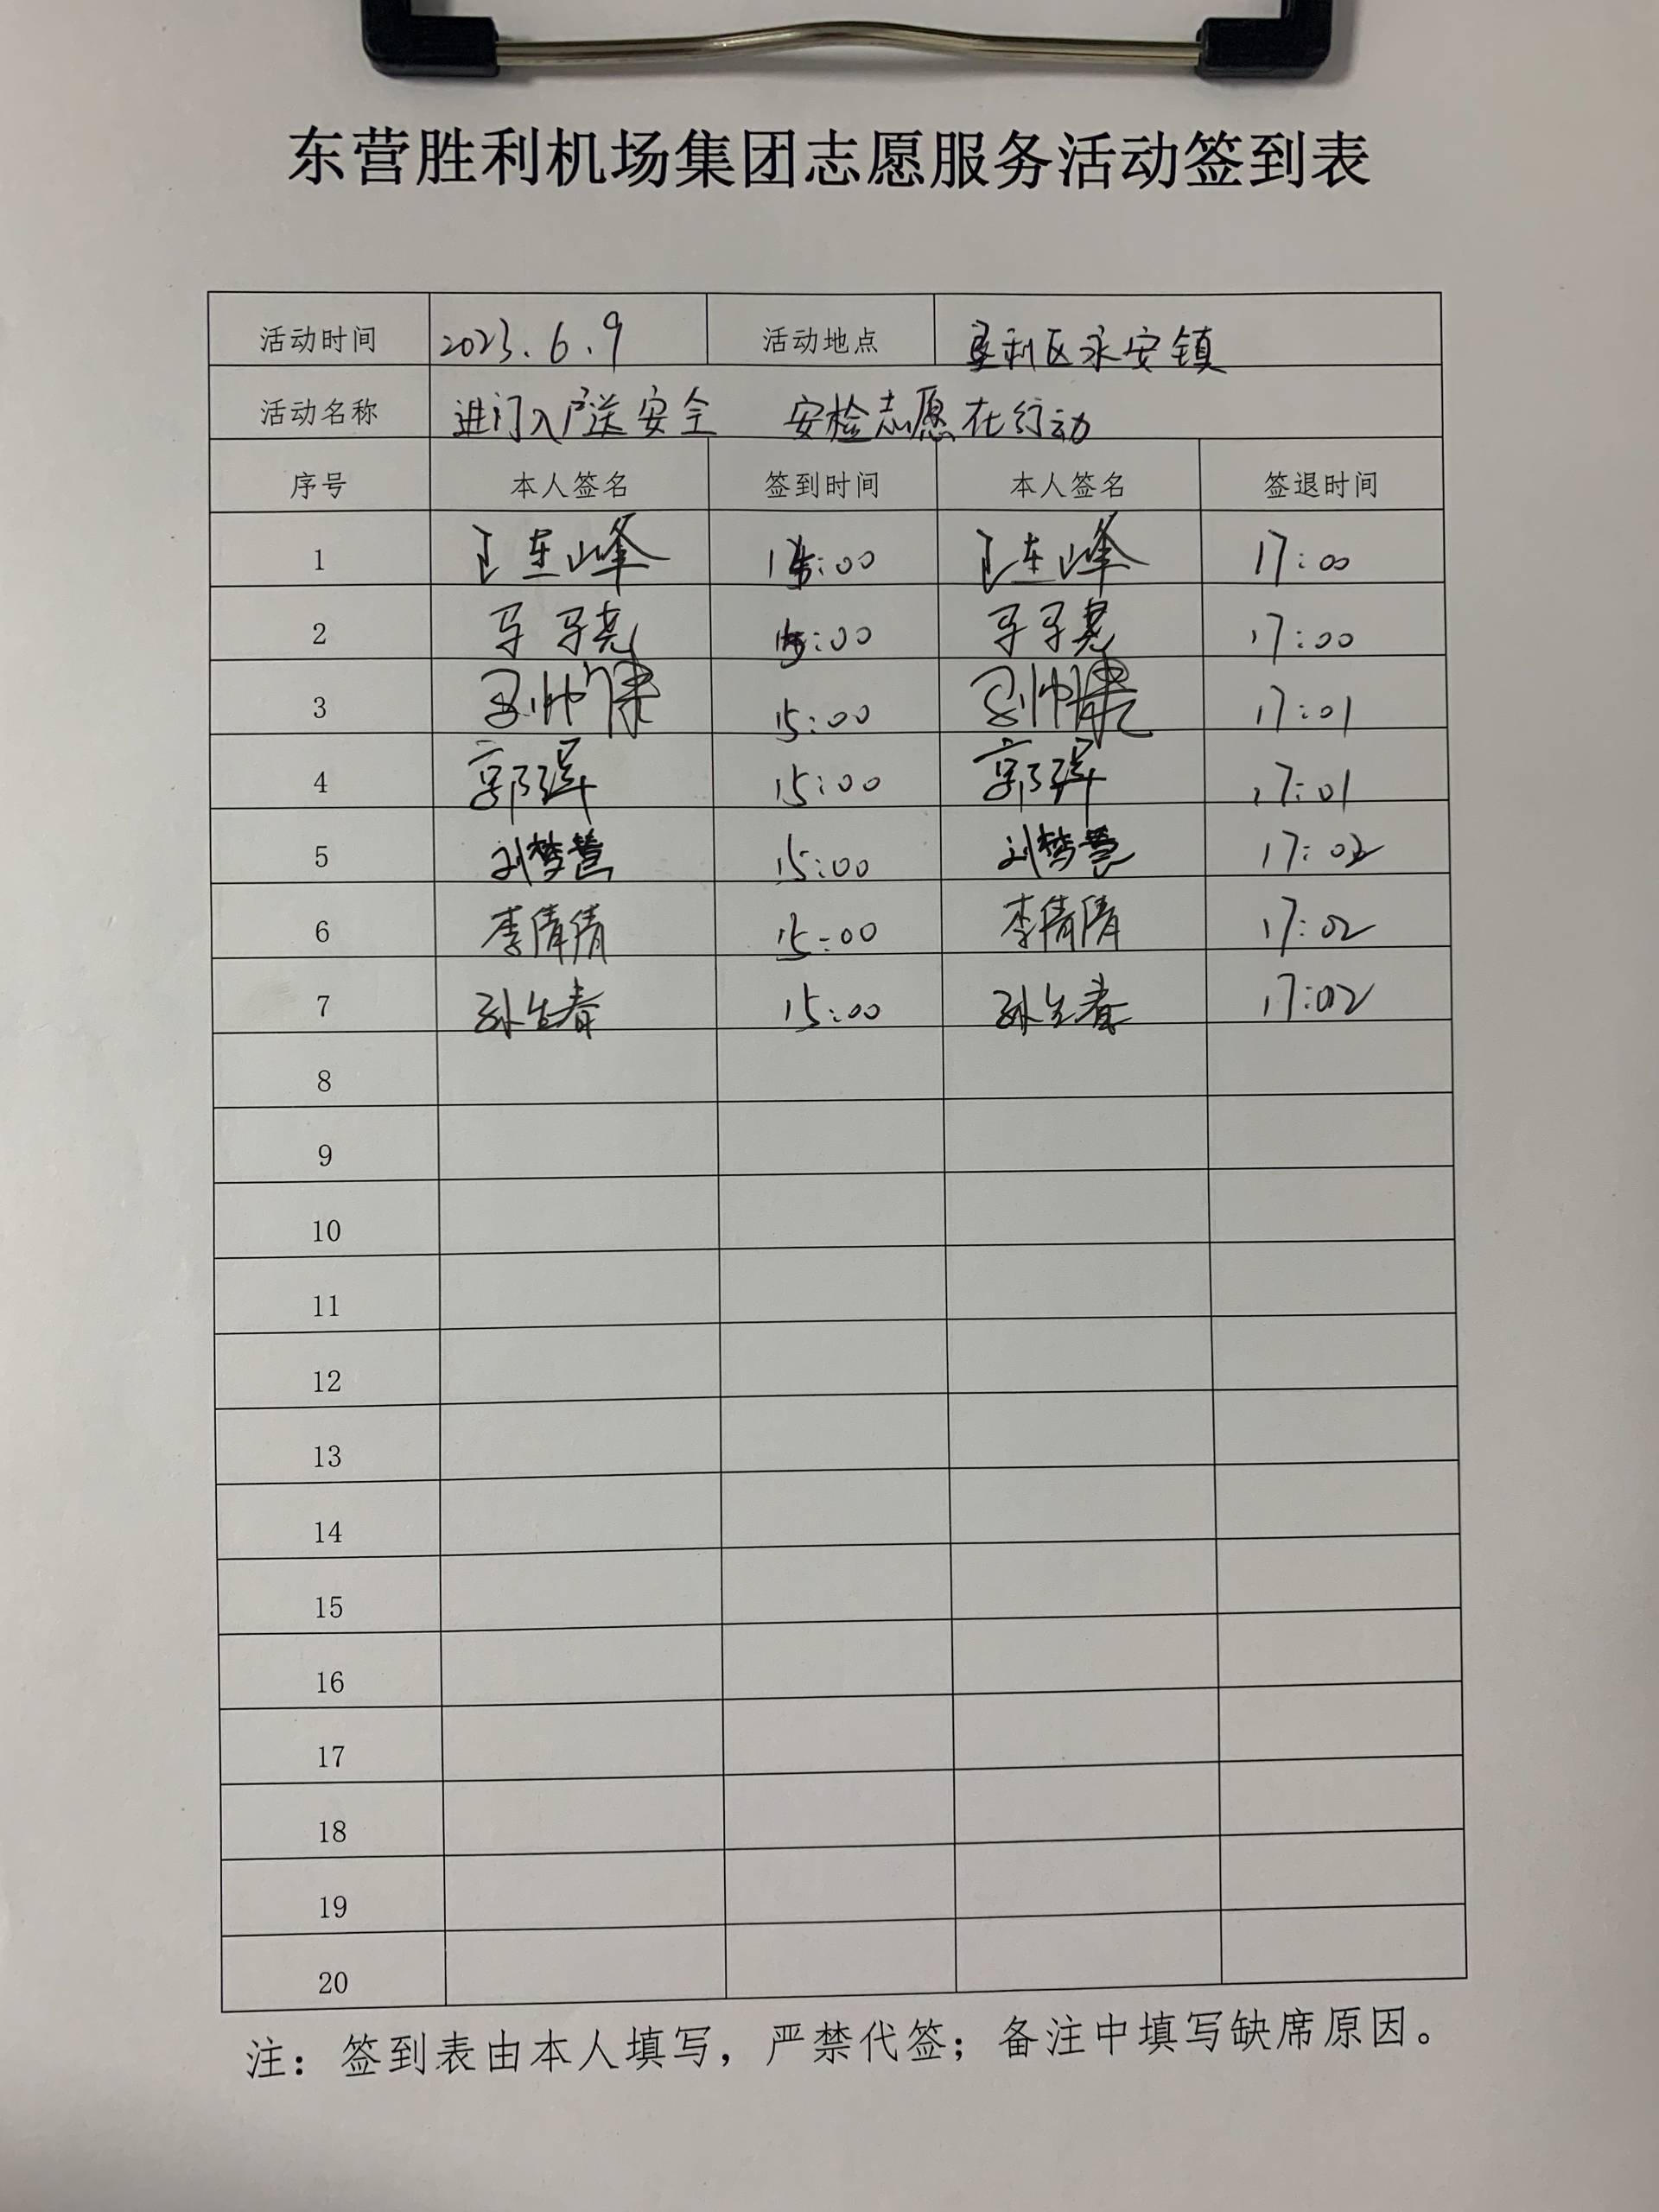 东营胜利机场集团志愿服务活动签到表
活动时间 2023.6.9 活动地点 垦利区永安镇
活动名称 进门入户送安全 安检志愿在行动
序号 本人签名 签到时间 本人签名 签退时间
1 15:00 17:00
2 15:00 17:00
3 15:00 17:01
4 郭 15:00 郭 17:01
5 刘梦 15:00 刘梦 17:02
6 李倩倩 15:00 李倩倩 17:02
7 孙生春 15:00 孙生春 17:02
8
9
10
11
12
13
14
15
16
17
18
19
20
注：签到表由本人填写，严禁代签；备注中填写缺席原因。